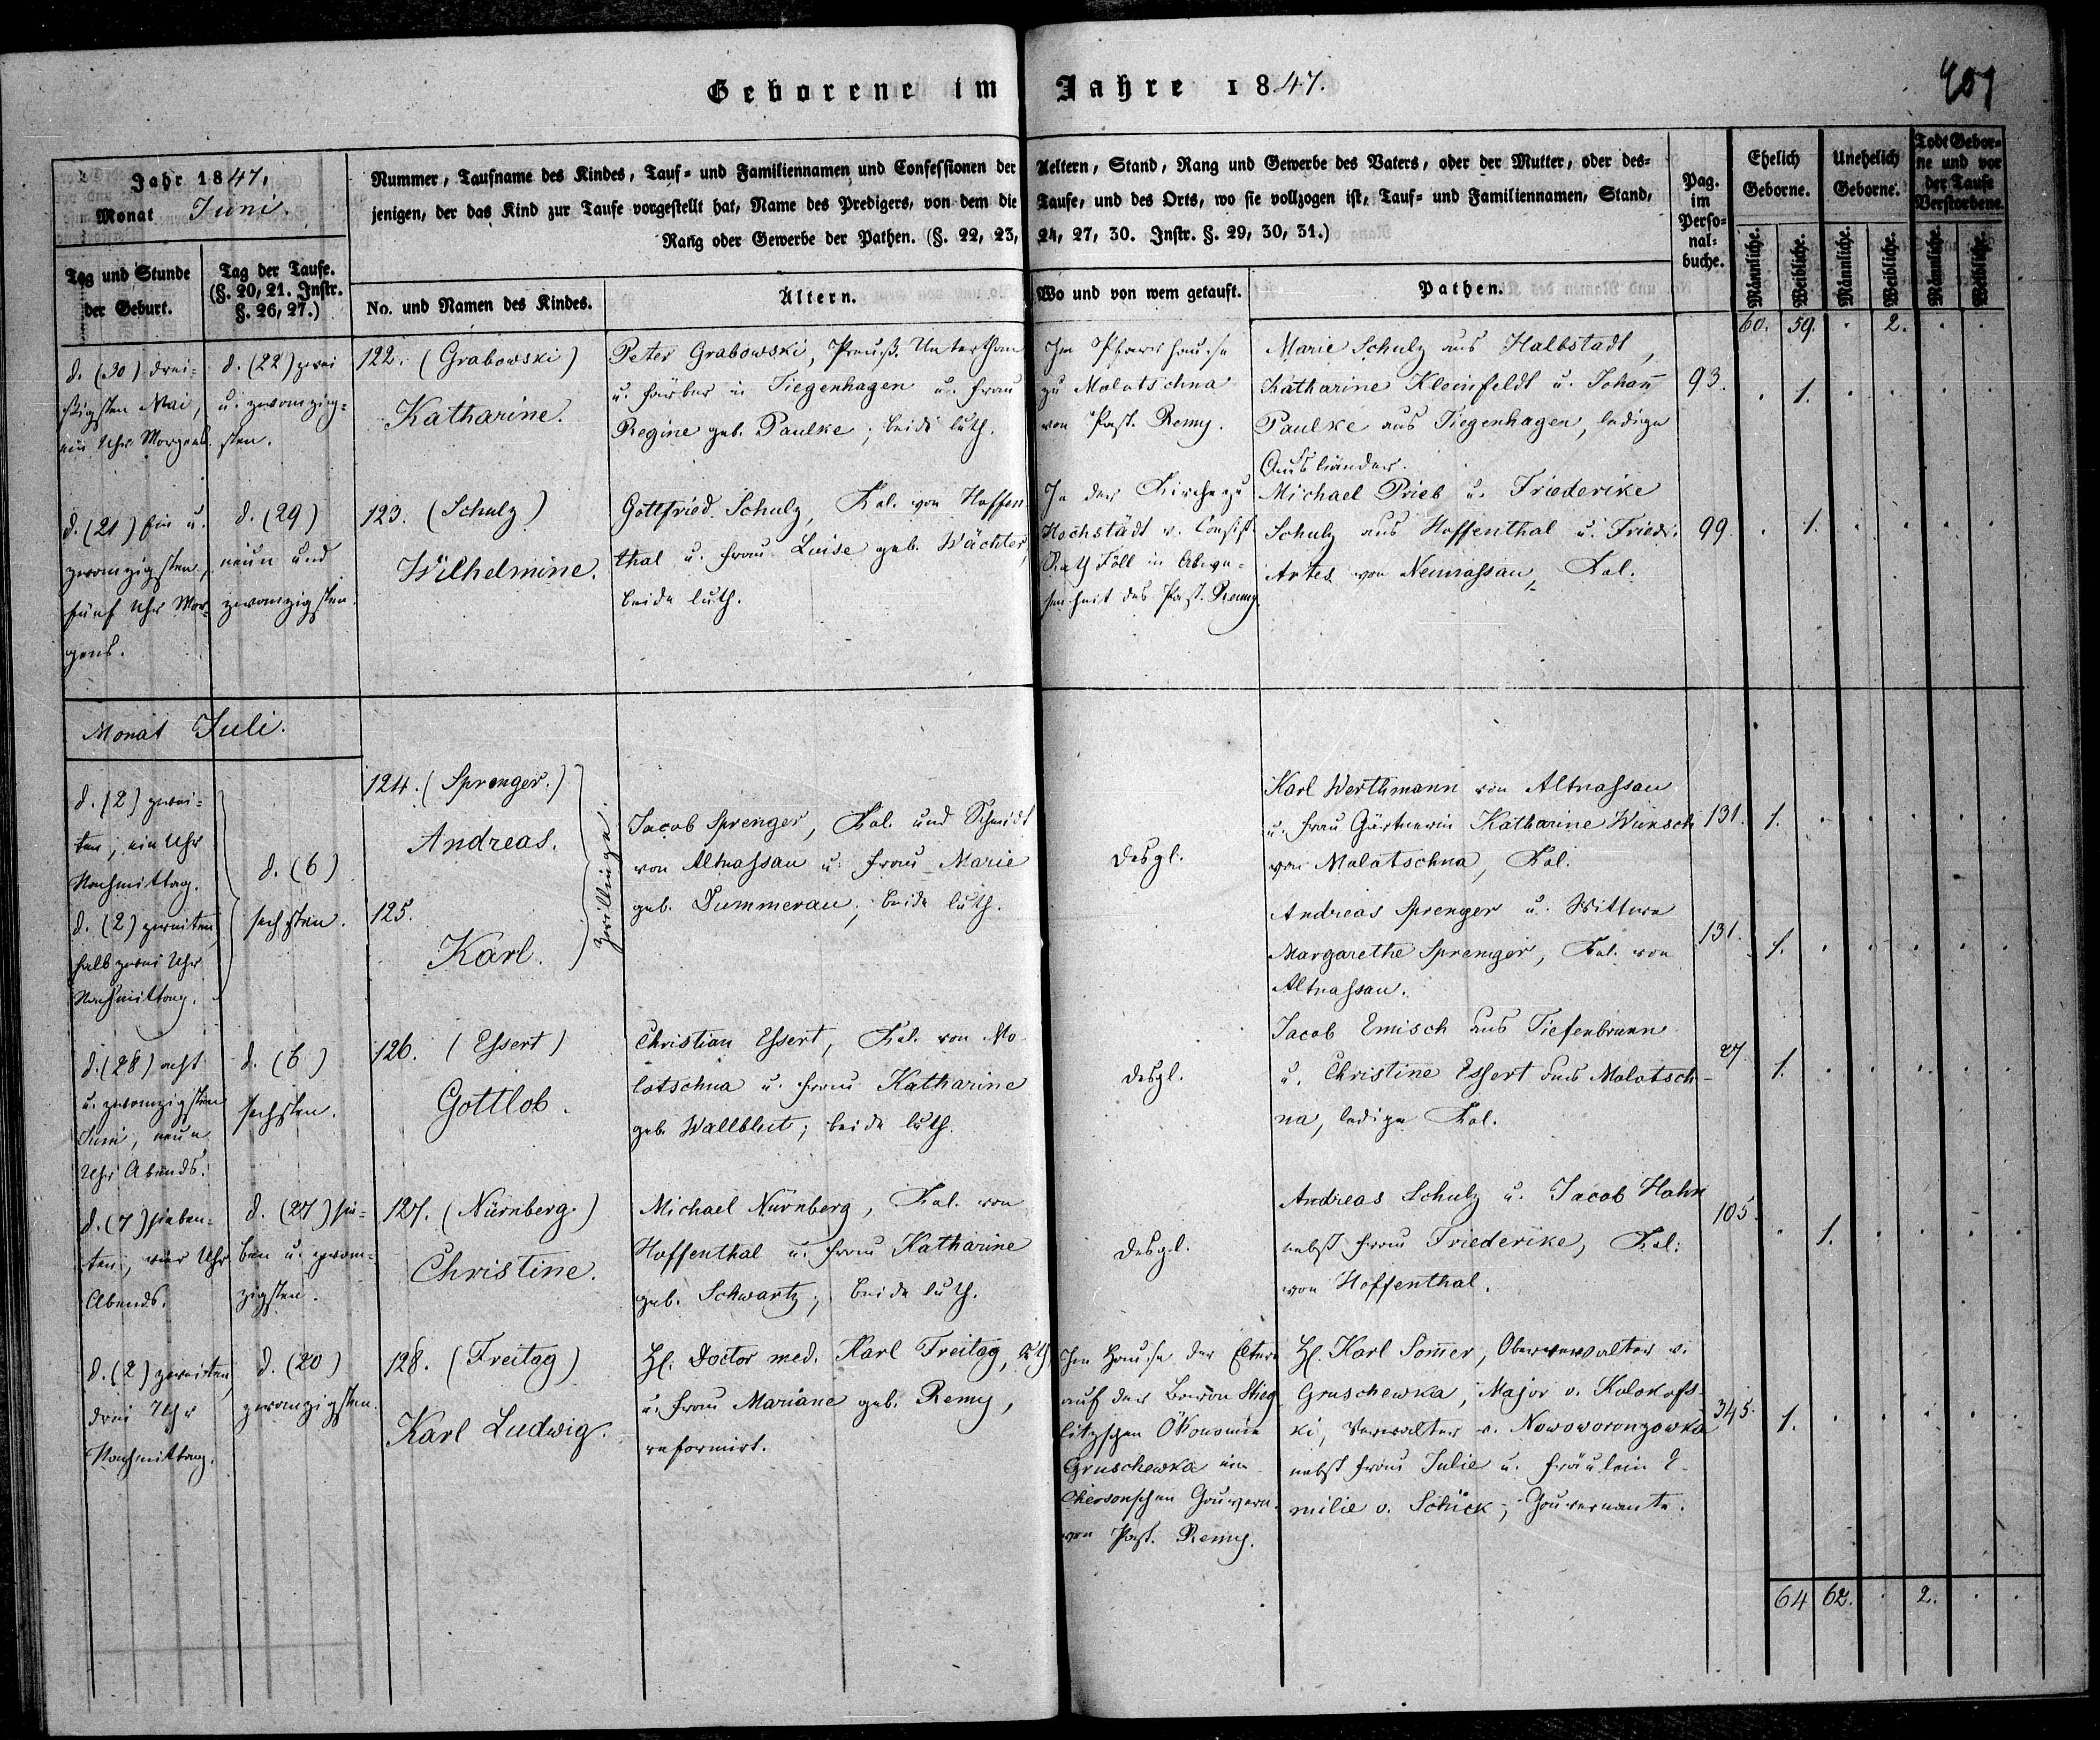 Geborene im Jahre 1847.
Jahr 1847.
Monat Juni.
Nummer, Taufname des Kindes, Tauf- und Familiennamen und Confessionen der Aeltern, Stand, Rang und Gewerbe des Vaters, oder der Mutter, oder des-
jenigen, der das Kind zur Taufe vorgestellt hat, Name des Predigers, von dem die Taufe, und des Orts, wo sie vollzogen ist, Tauf- und Familiennamen, Stand,
Rang oder Gewerbe der Pathen. (§. 22, 23, 24, 27, 30. Instr. §. 29, 30, 31.)
Pag.
im
Perso-
nal-
buche.
Ehelich
Geborne.
Unehelich
Geborne.
Todt Gebor-
ne und vor
der Taufe
Verstorbene.
Tag und Stunde
der Geburt.
Tag der Taufe.
(§. 20, 21. Instr.
§. 26, 27.)
No. und Namen des Kindes.
Ältern.
Wo und von wem getauft.
Pathen.
Männliche.
Weibliche.
Männliche.
Weibliche.
Männliche.
Weibliche.
60. 59. . 2. . .
d. (30) drei-
ßigsten Mai,
ein Uhr Morgens
d. (22) zwei
u. zwanzig-
sten.
122. (Grabowski)
Katharine.
Peter Grabowski, Preuß. Unterthan
u. Färber in Tiegenhagen u. Frau
Regine geb. Paulke; beide luth.
Im Pfarrhause
zu Molotschna
von Past. Remy.
Marie Schulz aus Halbstadt,
Katharine Kleinfeldt u. Johann
Paulke aus Tiegenhagen, ledige
Ausländer.
93.
. 1. . . . .
d. (21) ein u.
zwanzigsten,
fünf Uhr Mor-
gens.
d. (29)
neun und
zwanzigsten.
123. (Schulz)
Wilhelmine.
Gottfried Schulz, Kol. von Hoffen-
thal u. Frau Luise geb. Wächter,
beide luth.
In der Kirche zu
Hochstädt v. Consist.
Rath Föll in Abwe-
senheit des Past. Remy
Michael Prieb u. Friederike
Schulz aus Hoffenthal u. Friedr.
Artes von Neunassau, Kol.
99.
. 1. . . . .
Monat Juli.
d. (2) zwei-
ten, ein Uhr
Nachmittag.
d. (2) zweiten
halb zwei Uhr
Nachmittag.
d. (6)
sechsten.
124. (Sprenger.)
Andreas.
125.
Karl.
Zwillinge.
Jacob Sprenger, Kol. und Schmidt
von Altnassau u. Frau Marie
geb. Dummerau; beide luth.
desgl.
Karl Werthmann von Altnassau
u. Frau Gärtnerin Katharine Wunsch
von Molotschna, Kol.
131. 1. . . . . .
Andreas Sprenger u. Wittwe
Margarethe Sprenger, Kol. von
Altnassau.
131. 1. . . . . .
d. (28) acht
u. zwanzigsten
Juni, neun
Uhr Abends.
d. (6)
sechsten.
126. (Essert)
Gottlob.
Christian Essert, Kol. von Mo-
lotschna u. Frau Katharine
geb. Wallblut; beide luth.
desgl.
Jacob Emisch aus Tiefenbrunn
u. Christine Essert aus Molotsch-
na, ledige Kol.
27 1. . . . . .
d. (7) sieben-
ten, vier Uhr
Abends.
d. (27) sie-
ben u. zwan-
zigsten.
127. (Nürnberg.)
Christine.
Michael Nürnberg, Kol. von
Hoffenthal u. Frau Katharine
geb. Schwartz; beide luth.
desgl.
Andreas Schulz u. Jacob Hahn
nebst Frau Friederike, Kol.
von Hoffenthal.
105. . 1. . . . .
d. (2) zweiten,
drei Uhr
Nachmittag.
d. (20)
zwanzigsten.
128. (Freitag)
Karl Ludwig.
H. Doctor med. Karl Freitag, luth.
u. Frau Mariane geb. Remy,
reformirt.
Im Hause der Eltern
auf der Baron Stieg-
litzschen Ökonomie
Gruschewka im
Chersonschen Gouvern.
von Past. Remy.
H. Karl Sommer, Oberverwalter v.
Gruschewka, Major v.
ki, Verwalter v. Nowoworonzowka
nebst Frau Julie u. Fräulein E-
milie v. Schick, Gouvernante.
345. 1. . . . . .
64 62. . 2. . .